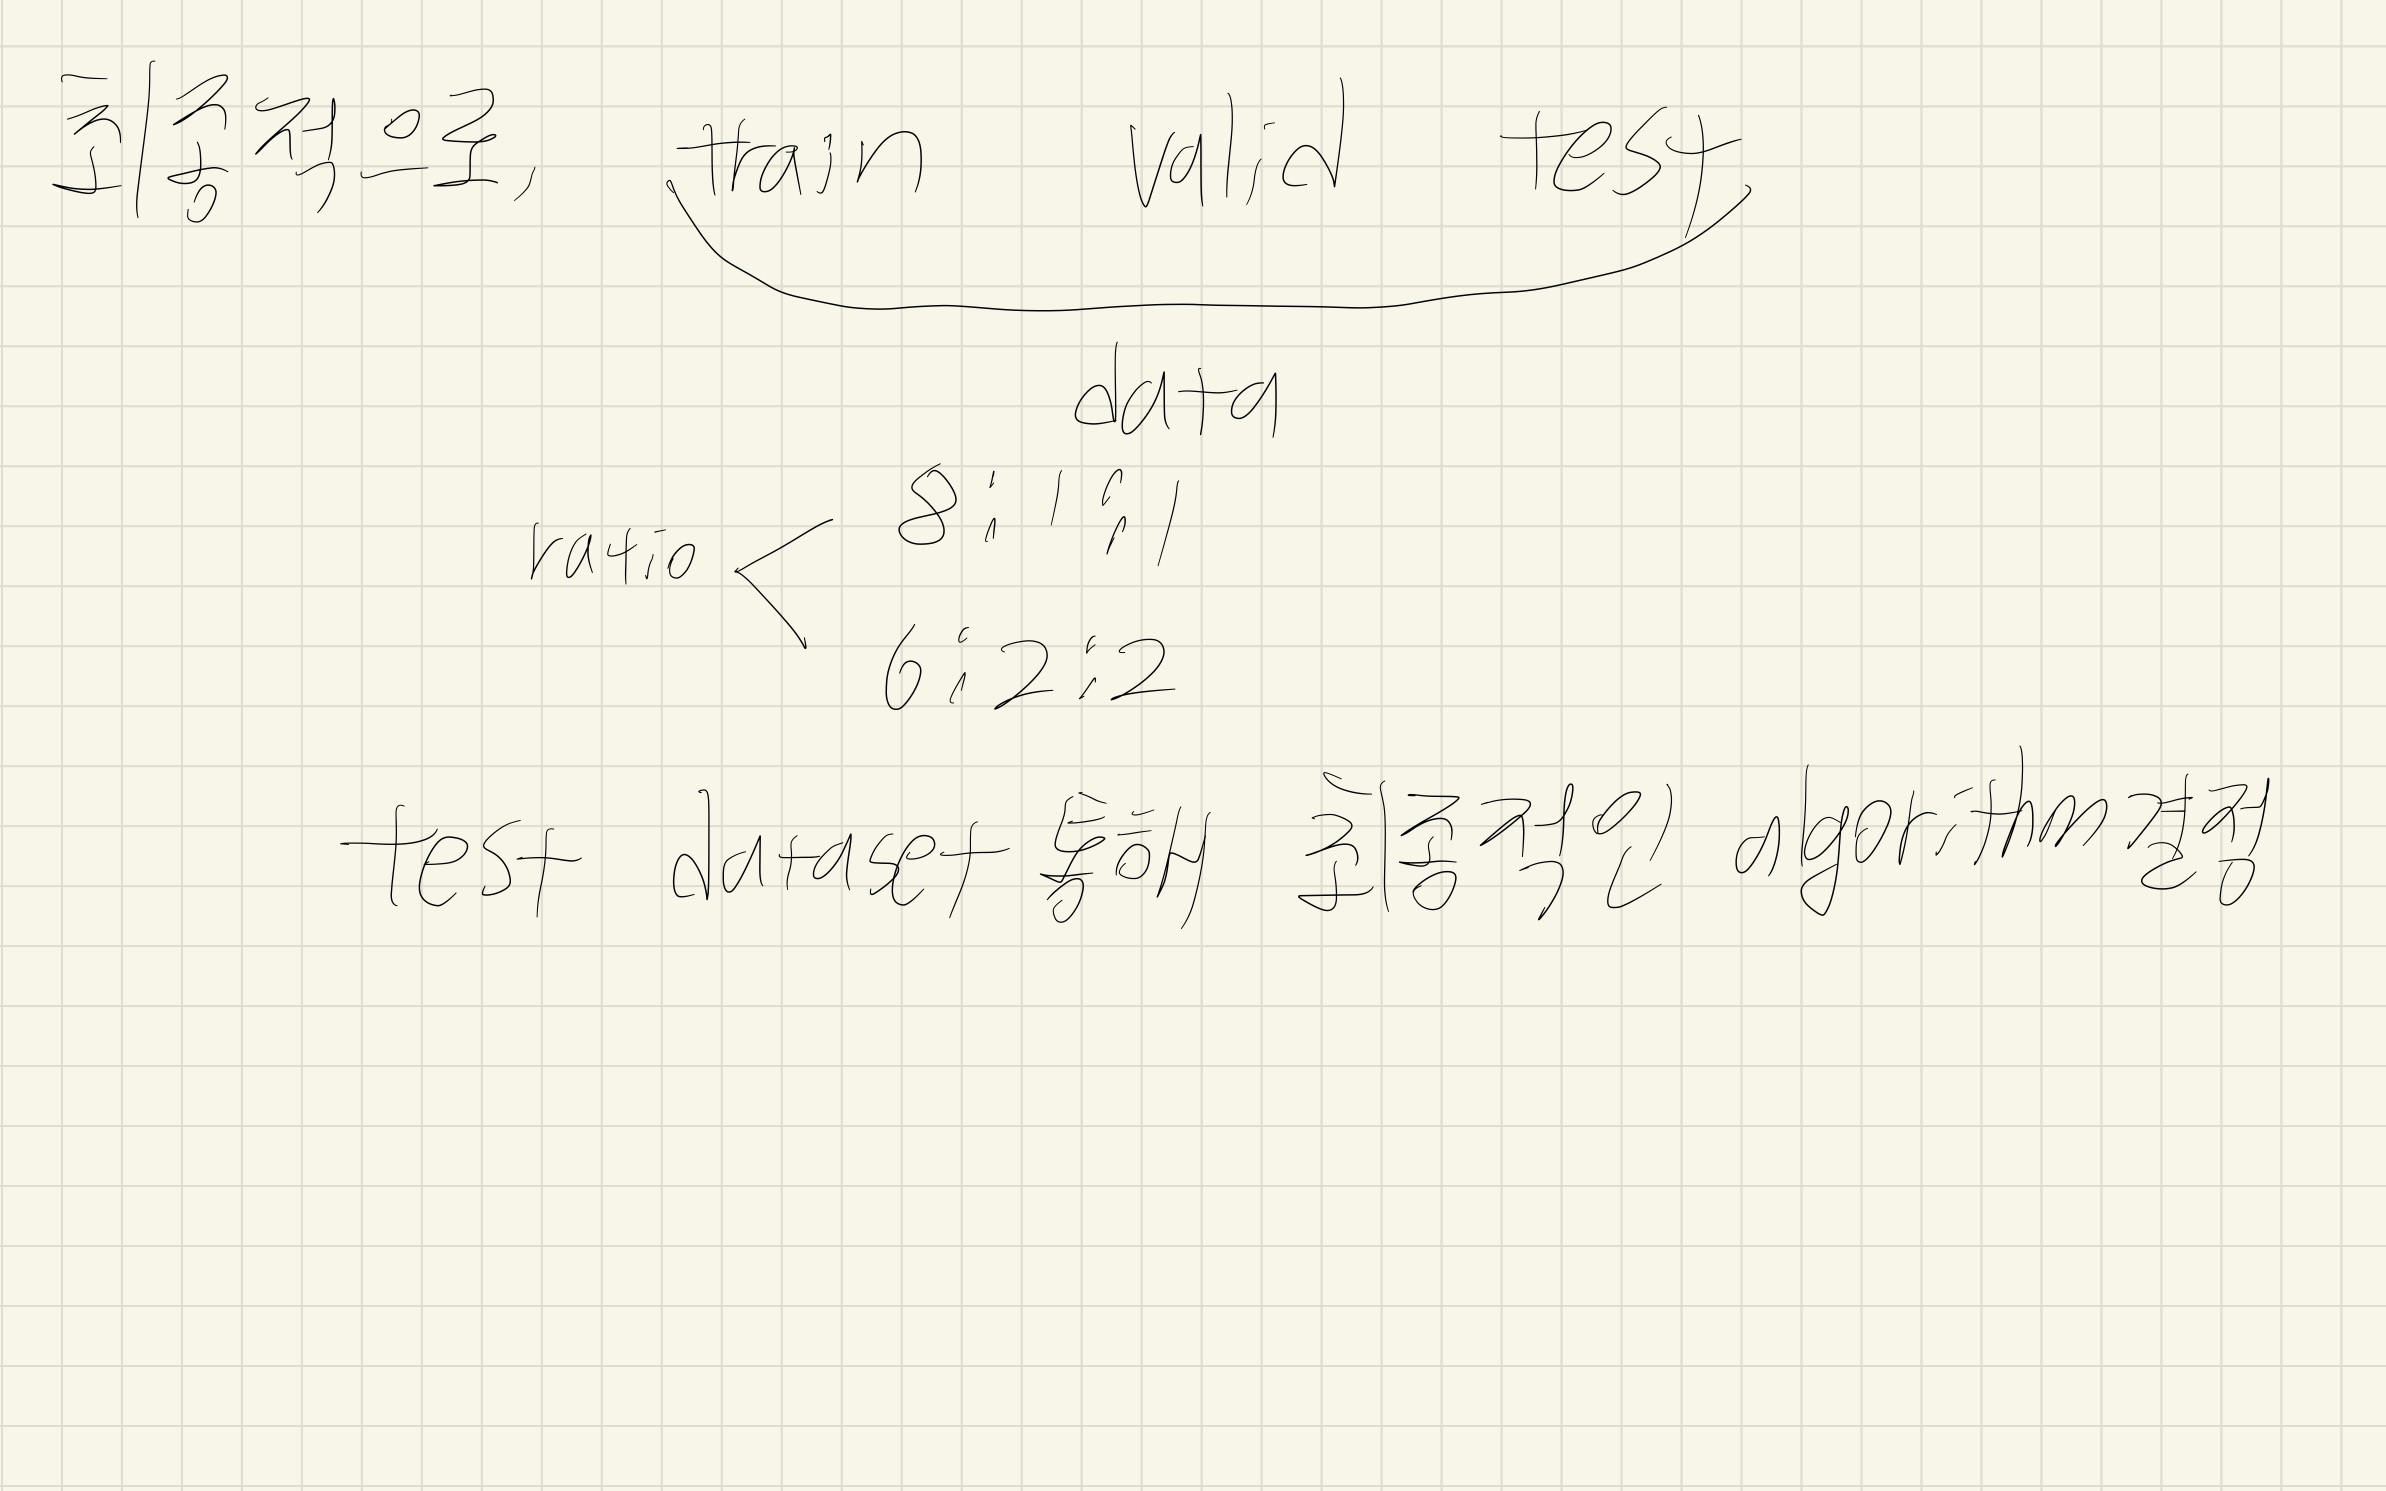 최종적으로, train valid test,
data
8:1:1
ratio
6:2:2
test dataset 통해 최종적인 algorithm결정